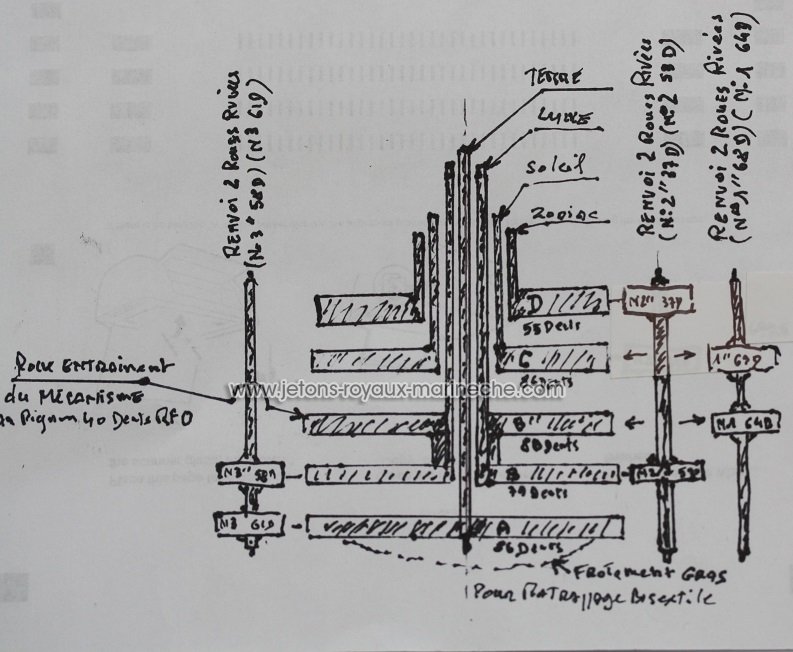 TERRE
LUNE
Soleil
Zodiac
RENVOI 2 ROUES Rivées
(N°3" 58D) (N°3 61D)
RENVOI 2 ROUES Rivées
(N°2" 37D) (N°2 58D)
RENVOI 2 ROUES Rivées
(N°1" 68D) (N°1 64D)
D
55 Dents
N2" 37D
C
86 Dents
1" 67D
ROUE ENTRAINEMENT
du MÉCANISME
Pignon 40 Dents
www.jetons-royaux-marineche.com
B"
80 Dents
N1 64D
N3" 58D
B
79 Dents
N2 58D
N3 61D
A
86 Dents
FROTEMENT GRAS
POUR RATRAPPAGE BISEXTILE